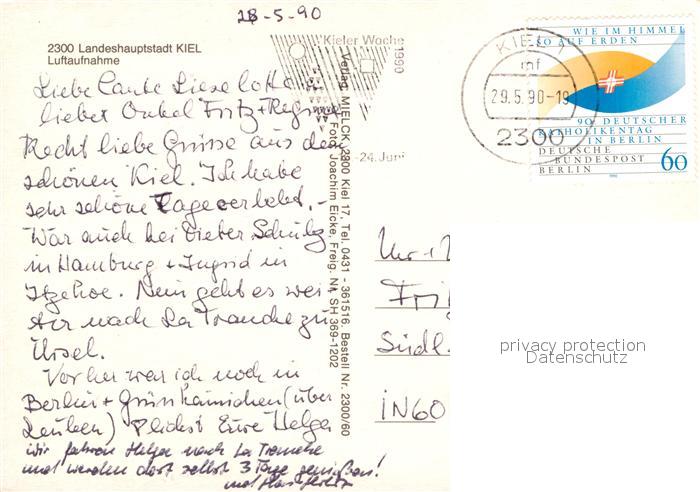 28-5-90
2300 Landeshauptstadt KIEL
Luftaufnahme
Liebe Tante Lieselotte
lieber Onkel Fritz +
Recht liebe Grüsse aus dem
schönen Kiel. Ich habe
sehr schöne Tage verlebt.-
War auch bei Dieter Schulz
in Hamburg + Ingrid in
Itzehoe. Nun geht es wei-
ter nach La Tranche zu
Ursel.
Vorher war ich noch in
Berlin + Grünhainichen (über
) Eure Helga
wir fahren Helga nach La Tranche
und werden dort selbst 3 Tage genießen!
und
Verlag MIELCK, 2300 Kiel 17, Tel. 0431 - 361516, Bestell Nr. 2300/60
Foto: Joachim Eicke, Freig. Nr. SH 369-1202
Kieler Woche
1990
-24. Juni
KIEL 1
mf
29.5.90-19
2300
WIE IM HIMMEL
SO AUF ERDEN
90. DEUTSCHER
KATHOLIKENTAG
IN BERLIN
DEUTSCHE
BUNDESPOST
BERLIN
60
1990
Südl.
privacy protection
Datenschutz